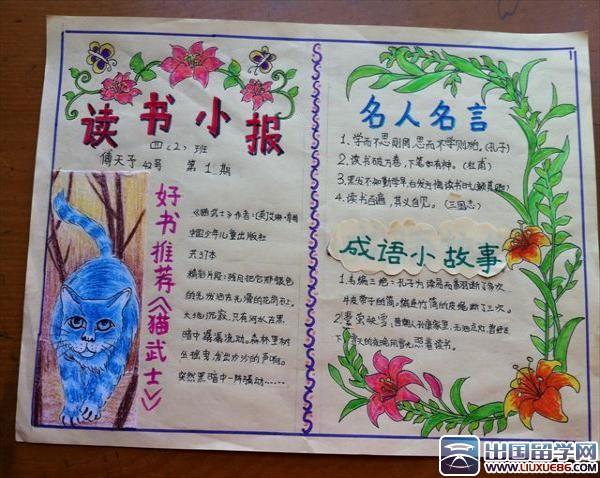 读书小报
四(2)班
傅天予 42号 第1期
好书推荐《猫武士》
《猫武士》作者:(英)艾琳·
中国少年儿童出版社
共37本
精彩片段:残月把它那银色
的光发洒在光滑的花岗石上。
大地沉寂,只有河水在黑
暗中潺潺流动。森林里树
影摇曳,发出沙沙的声响。
突然黑暗中一阵骚动……
名人名言
1、学而不思则罔,思而不学则殆。(孔子)
2、读书破万卷,下笔如有神。(杜甫)
3、黑发不知勤学早,白发方悔读书迟(颜真卿)
4、读书百遍,其义自见。(三国志)
成语小故事
1、韦编三绝:孔子为读易而翻断了多次
牛皮带子的简。编连竹简的皮绳断了三次。
2、萤窗映雪:晋朝人书僮家里,无油点灯,
下 的
出国留学网
www.liuxue86.com